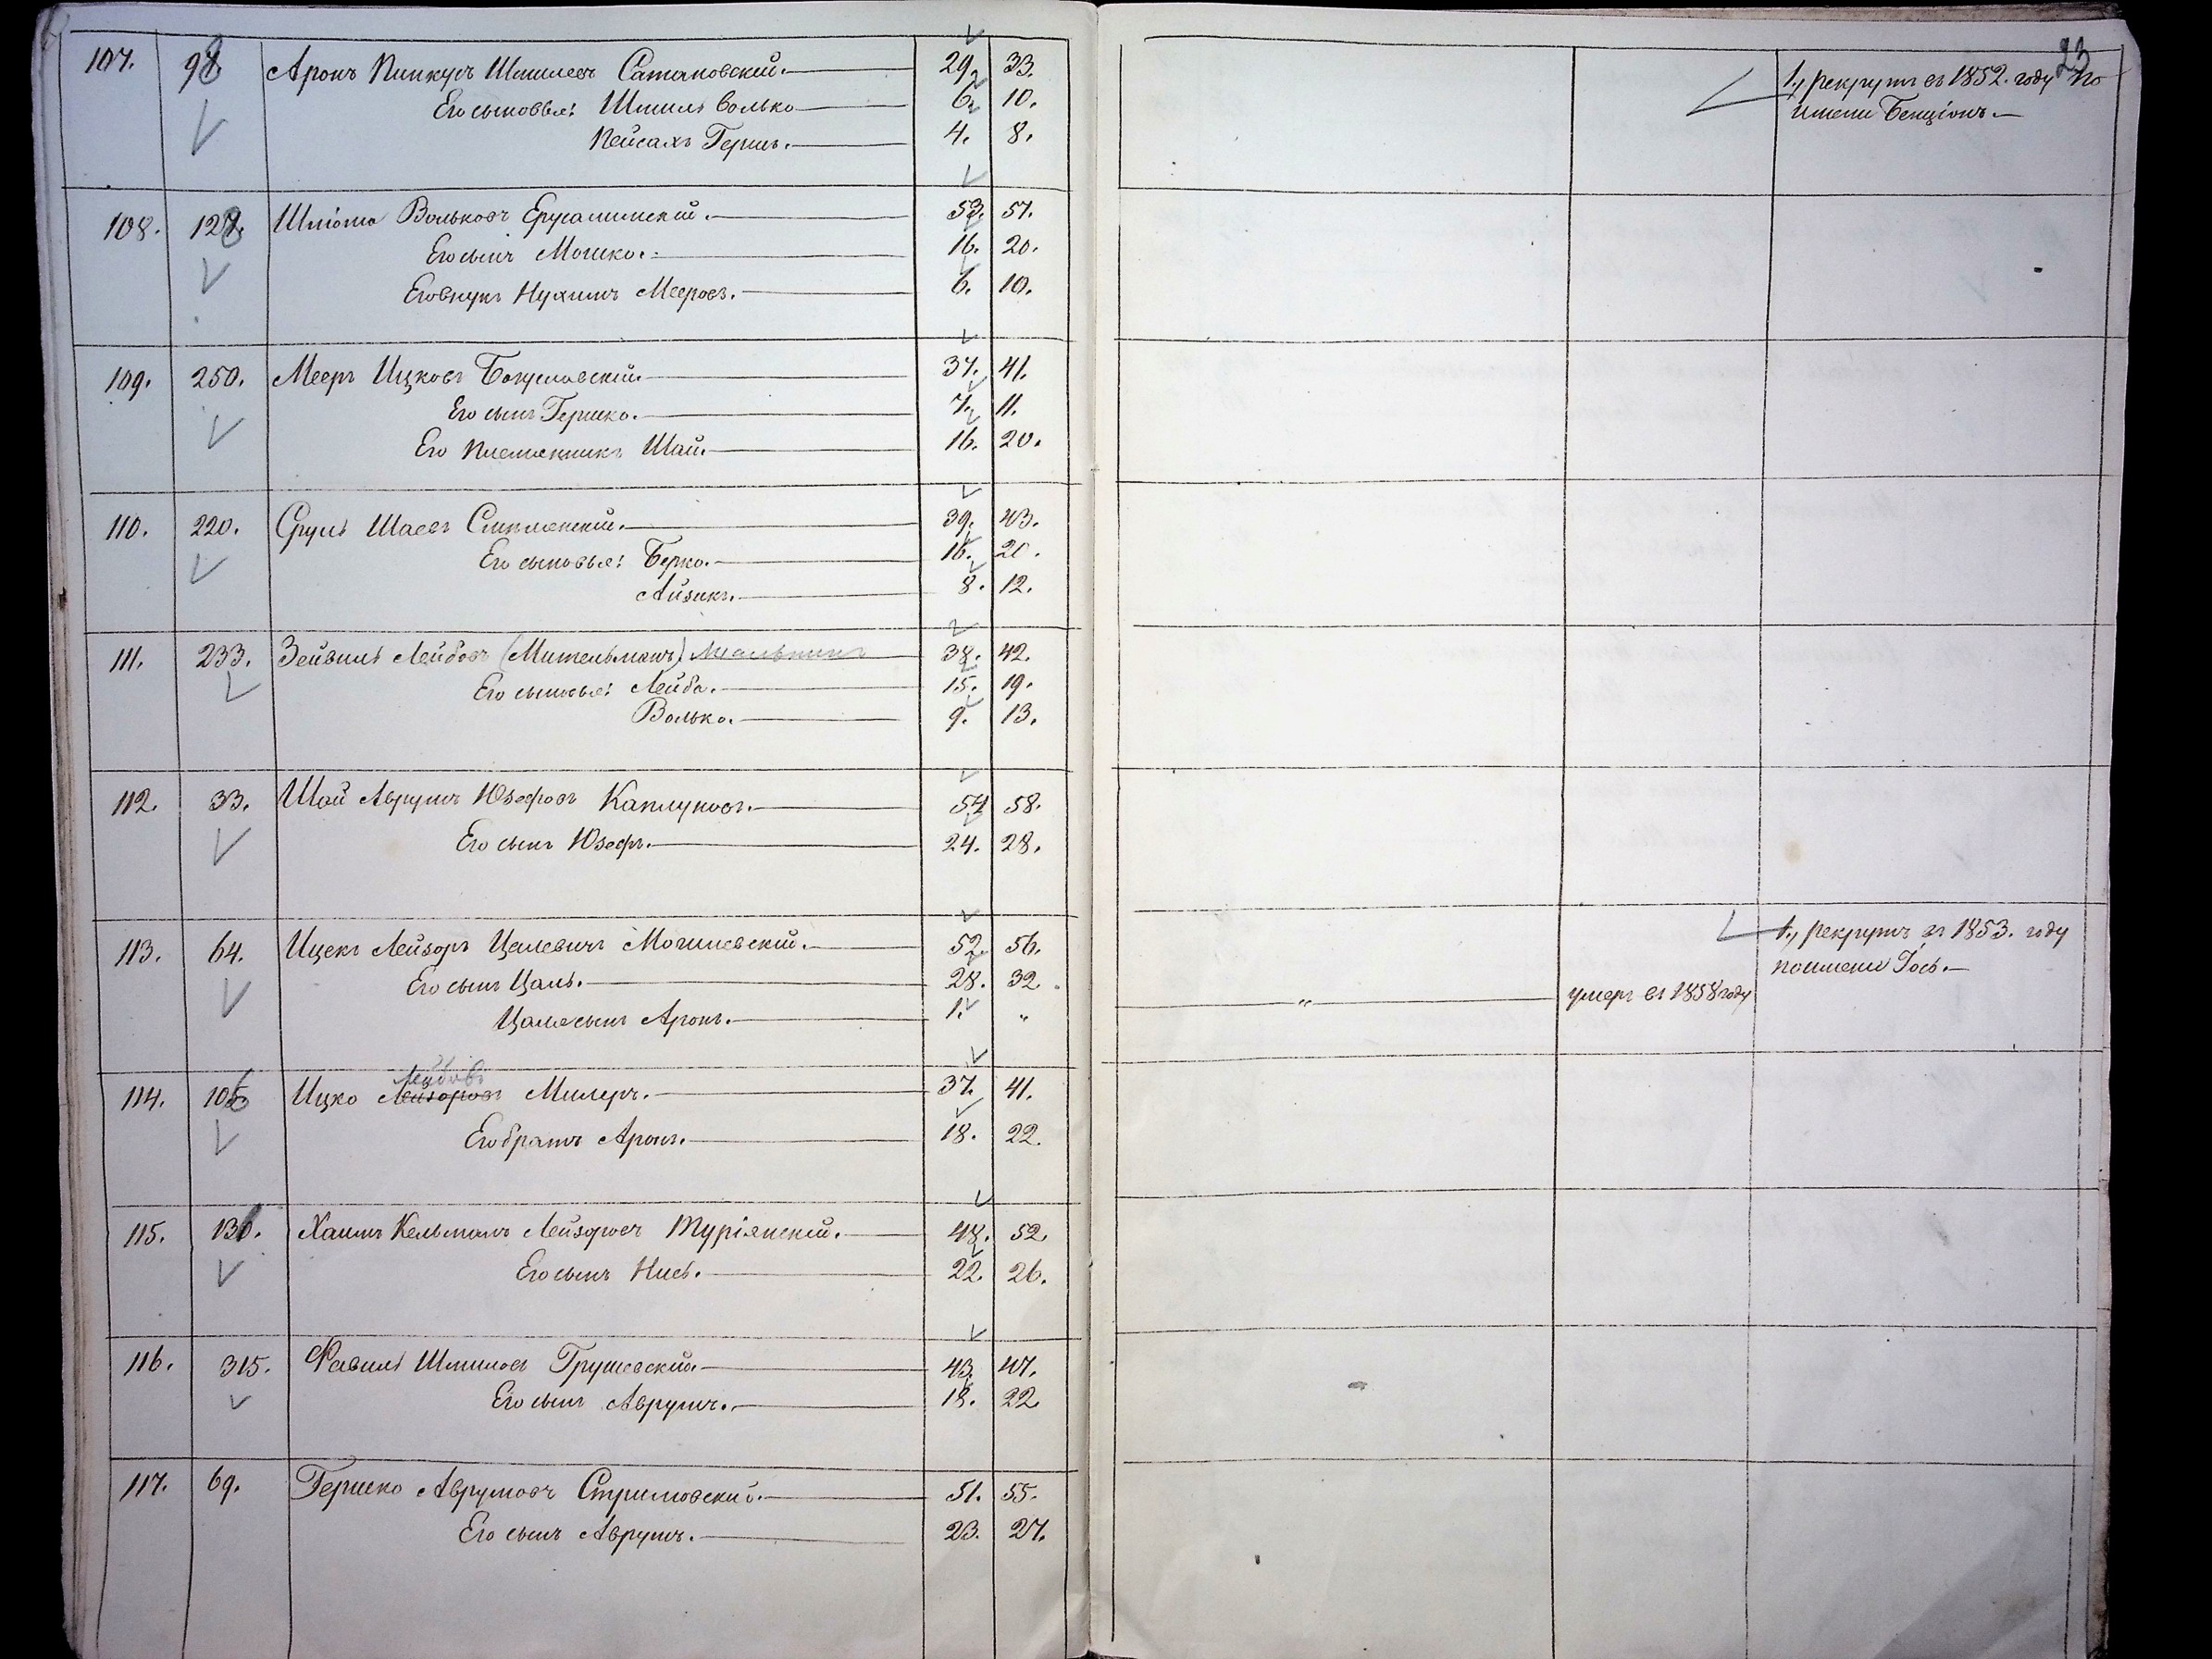 23
107. 98 Аронъ Пинкусъ Шмилевъ Сатановский. 29. 33. 1, рекрутъ въ 1852. году по
Его сыновья: Шмиль Волько 6. 10. имени Бенціонъ.
Пейсахъ Гершъ. 4. 8.
108. 128. Шліома Вольковъ Ерусалимскій. 53. 57.
Его сынъ Мошко. 16. 20.
Его внукъ Нухимъ Мееровъ. 6. 10.
109. 250. Мееръ Ицковъ Богуславскій. 37. 41.
Его сынъ Гершко. 7. 11.
Его племянникъ Шай. 16. 20.
110. 220. Сруль Шаевъ Смилянский. 39. 43.
Его сыновья: Берко. 16. 20.
Айзикъ. 8. 12.
111. 233. Зейвиль Лейбовъ (Мительманъ) Мельникъ 38. 42.
Его сыновья: Лейба. 15. 19.
Волько. 9. 13.
112. 33. Шай Аврумъ Юзефовъ Каплуновъ. 54 58.
Его сынъ Юзефъ. 24. 28.
113. 64. Ицекъ Лейзоръ Цалевичъ Могилевский. 52. 56. 1, рекрутъ въ 1853. году
Его сынъ Цаль. 28. 32. " умеръ въ 1858 году по имени Іось.
Цаля сынъ Аронъ. 1. "
Лейбовъ
114. 106 Ицко Лейзоровъ Милеръ. 37. 41.
Его братъ Аронъ. 18. 22.
115. 130. Хаимъ Кельманъ Лейзоровъ Туріянскій. 48. 52.
Его сынъ Нисъ. 22. 26.
116. 315. Фавиль Шмиловъ Грушевский. 43. 47.
Его сынъ Аврумъ. 18. 22.
117. 69. Гершко Аврумовъ Стримовский. 51. 55.
Его сынъ Аврумъ. 23. 27.